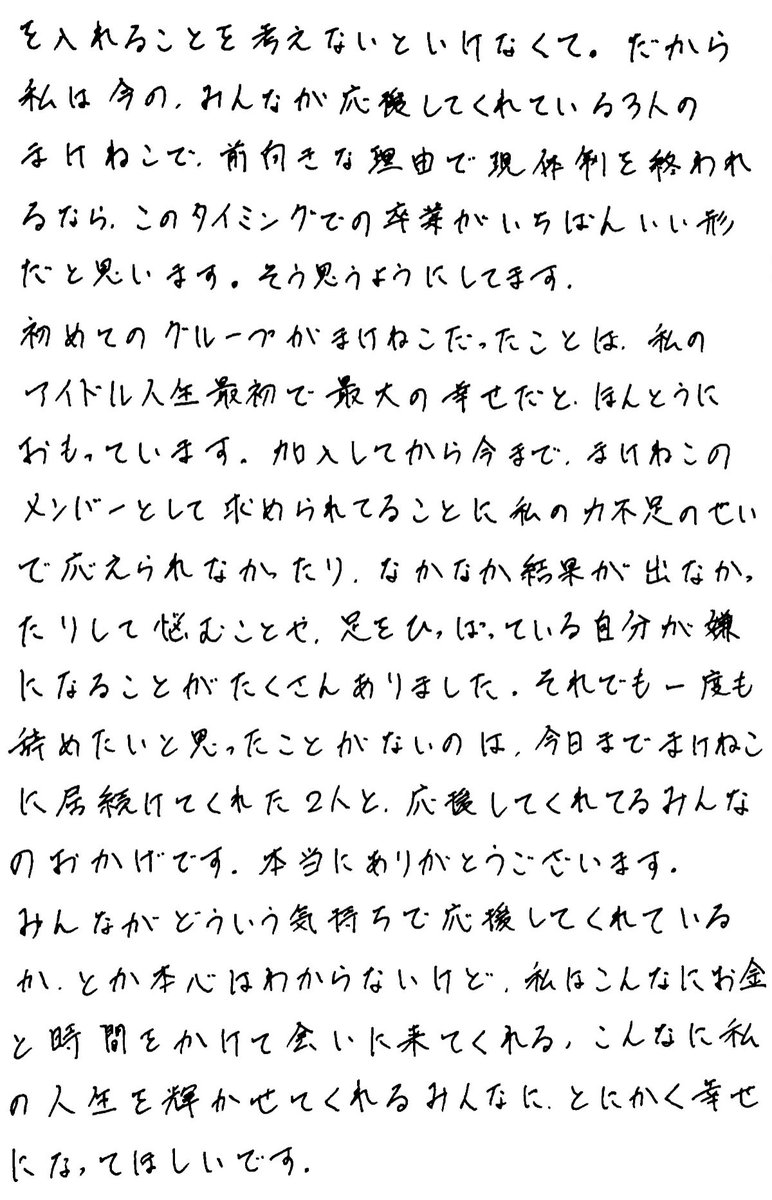 を入れることを考えないといけなくて。だから
私は今の、みんなが応援してくれている3人の
まけねこで、前向きな理由で現体制を終われ
るなら、このタイミングでの卒業がいちばんいい形
だと思います。そう思うようにしてます。
初めてのグループがまけねこだったことは、私の
アイドル人生最初で最大の幸せだと、ほんとうに
おもっています。加入してから今まで、まけねこの
メンバーとして求められてることに私の力不足のせい
で応えられなかったり、なかなか結果が出なかっ
たりして悩むことや、足をひっぱっている自分が嫌
になることがたくさんありました。それでも一度も
辞めたいと思ったことがないのは、今日までまけねこ
に居続けてくれた2人と、応援してくれてるみんな
のおかげです。本当にありがとうございます。
みんながどういう気持ちで応援してくれている
か、とか本心はわからないけど、私はこんなにお金
と時間をかけて会いに来てくれる、こんなに私
の人生を輝かせてくれるみんなに、とにかく幸せ
になってほしいです。